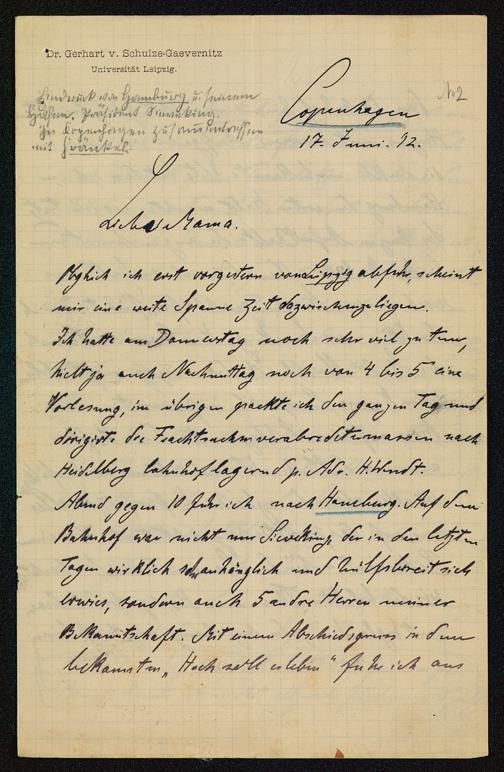 Dr. Gerhart v. Schulze-Gaevernitz
Universität Leipzig.
No 2
Eindruck von Hamburg u. seinem
Hafen. Präsident Sieveking.
In Kopenhagen zusammentreffen
mit Fränkel.
Copenhagen
17. Juni. 92.
Liebe Mama.
Obgleich ich erst vorgestern von Leipzig abfuhr, scheint
mir eine weite Spanne Zeit dazwischenzuliegen.
Ich hatte am Donnerstag noch sehr viel zu tun,
hielt ja auch Nachmittag noch von 4 bis 5 eine
Vorlesung, im übrigen packte ich den ganzen Tag und
dirigirte die Frachtsachen verabredetermassen nach
Heidelberg bahnhoflagernd p. Adr. H. Wendt.
Abend gegen 10 fuhr ich nach Hamburg. Auf dem
Bahnhof war nicht nur Sieveking, der in den letzten
Tagen wirklich sehr anhänglich und hülfsbereit sich
erwies, sondern auch 5 andre Herren meiner
Bekanntschaft. Mit einem Abschiedsgruss in dem
bekannten „Hoch soll er leben" fuhr ich aus